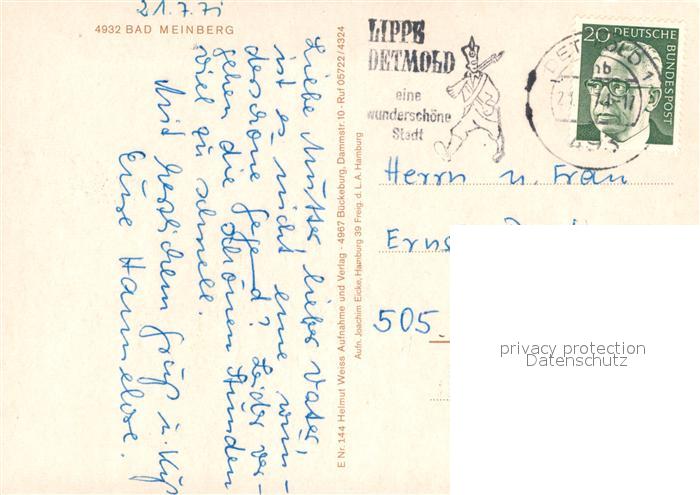 21.7.71
4932 BAD MEINBERG
Liebe Mutter, lieber Vater,
ist es nicht eine wun-
derschöne Gegend? Leider ver-
gehen die schönen Stunden
viel zu schnell.
Mit herzlichem Gruß u. Kuß
Eure Hannelore.
E Nr. 144 Helmut Weiss Aufnahme und Verlag · 4967 Bückeburg, Dammstr. 10 · Ruf 05722/4324
Aufn. Joachim Eicke, Hamburg 39 Freig. d. L. A. Hamburg
LIPPE
DETMOLD
eine
wunderschöne
Stadt
DETMOLD 1
493
20 DEUTSCHE
BUNDESPOST
Herrn u. Frau
505.
privacy protection
Datenschutz